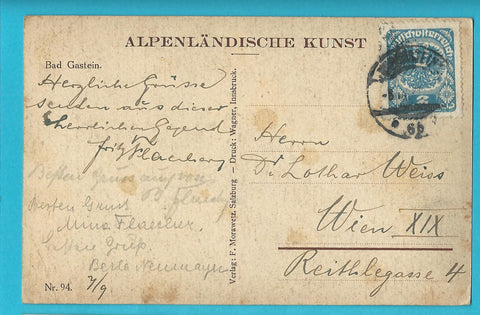 ALPENLÄNDISCHE KUNST
Bad Gastein.
Herzliche Grüsse
senden aus dieser
herrlichen Gegend
Fritz
Besten Gruss
Besten Gruss
Mina
Besten Gruss
Berta Neumayer
7/9
Nr. 94.
Verlag: F. Morawetz, Salzburg – Druck: Wagner, Innsbruck.
Deutschösterreich
Herrn
Dr. Lothar Weiss
Wien XIX
Reithlegasse 4